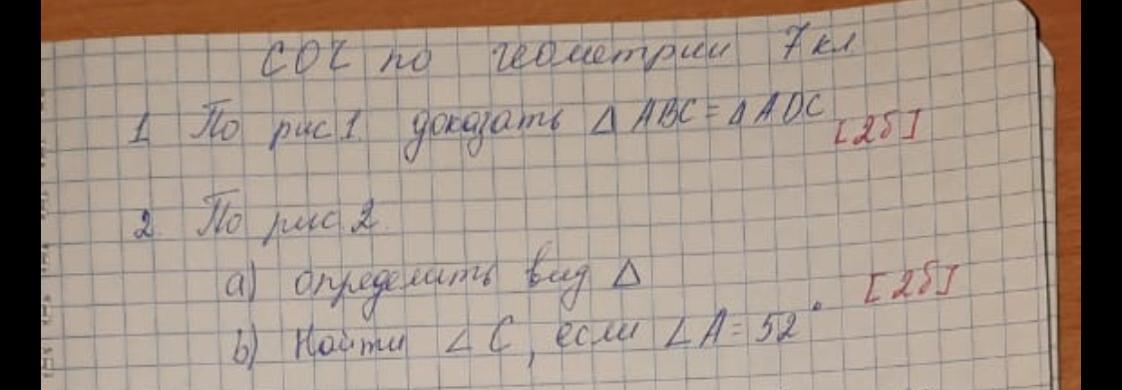 СОЧ по геометрии 7 кл
1. По рис 1. доказать Δ ABC = Δ ADC [2б]
2. По рис 2.
a) определить вид Δ
b) Найти ∠C, если ∠A = 52° [2б]